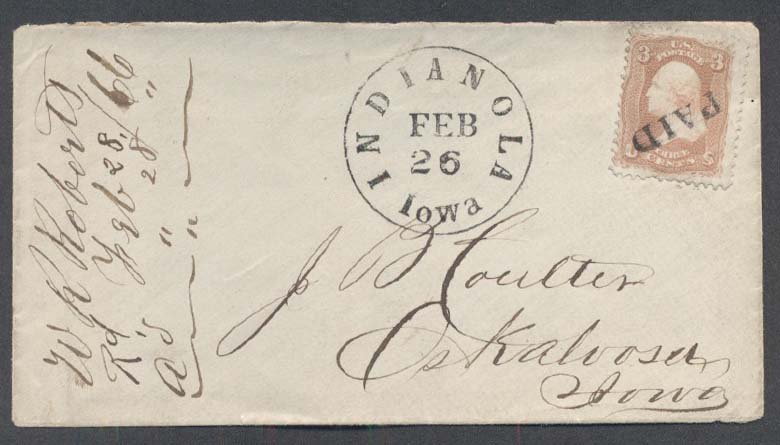 W K Roberts
Rd Feb 28/66
As " 28 "
INDIANOLA
FEB
26
Iowa
3 U.S. POSTAGE 3
PAID
THREE CENTS
J B Coulter
Oskaloosa
Iowa